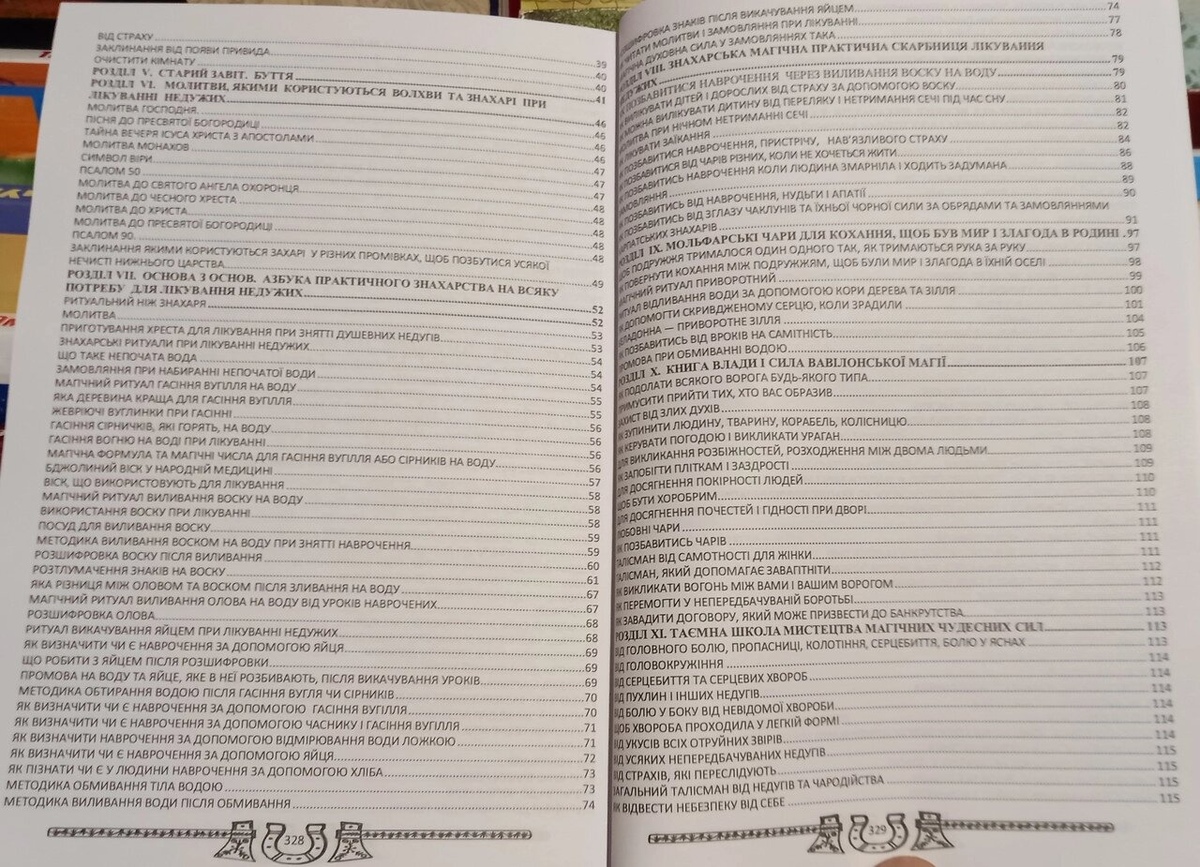 ВІД СТРАХУ
ЗАКЛИНАННЯ ВІД ПОЯВИ ПРИВИДА 39
ОЧИСТИТИ КІМНАТУ 40
РОЗДІЛ V. СТАРИЙ ЗАВІТ. БУТТЯ 40
РОЗДІЛ VI. МОЛИТВИ, ЯКИМИ КОРИСТУЮТЬСЯ ВОЛХВИ ТА ЗНАХАРІ ПРИ 41
ЛІКУВАННІ НЕДУЖИХ
МОЛИТВА ГОСПОДНЯ 46
ПІСНЯ ДО ПРЕСВЯТОЇ БОГОРОДИЦІ 46
ТАЙНА ВЕЧЕРЯ ІСУСА ХРИСТА З АПОСТОЛАМИ 46
МОЛИТВА МОНАХОВ 46
СИМВОЛ ВІРИ 47
ПСАЛОМ 50 47
МОЛИТВА ДО СВЯТОГО АНГЕЛА ОХОРОНЦЯ 47
МОЛИТВА ДО ЧЕСНОГО ХРЕСТА 48
МОЛИТВА ДО ХРИСТА 48
МОЛИТВА ДО ПРЕСВЯТОЇ БОГОРОДИЦІ 48
ПСАЛОМ 90 48
ЗАКЛИНАННЯ ЯКИМИ КОРИСТУЮТЬСЯ ЗАХАРІ У РІЗНИХ ПРОМІВКАХ, ЩОБ ПОЗБУТИСЯ УСЯКОЇ
НЕЧИСТІ НИЖНЬОГО ЦАРСТВА 49
РОЗДІЛ VII. ОСНОВА З ОСНОВ. АЗБУКА ПРАКТИЧНОГО ЗНАХАРСТВА НА ВСЯКУ
ПОТРЕБУ ДЛЯ ЛІКУВАННЯ НЕДУЖИХ 52
РИТУАЛЬНИЙ НІЖ ЗНАХАРЯ 52
МОЛИТВА 53
ПРИГОТУВАННЯ ХРЕСТА ДЛЯ ЛІКУВАННЯ ПРИ ЗНЯТТІ ДУШЕВНИХ НЕДУГІВ 53
ЗНАХАРСЬКІ РИТУАЛИ ПРИ ЛІКУВАННІ НЕДУЖИХ 54
ЩО ТАКЕ НЕПОЧАТА ВОДА 54
ЗАМОВЛЯННЯ ПРИ НАБИРАННІ НЕПОЧАТОЇ ВОДИ 54
МАГІЧНИЙ РИТУАЛ ГАСІННЯ ВУГІЛЛЯ НА ВОДУ 55
ЯКА ДЕРЕВИНА КРАЩА ДЛЯ ГАСІННЯ ВУГІЛЛЯ 55
ЖЕВРІЮЧІ ВУГЛИНКИ ПРИ ГАСІННІ 56
ГАСІННЯ СІРНИЧКІВ, ЯКІ ГОРЯТЬ, НА ВОДУ 56
ГАСІННЯ ВОГНЮ НА ВОДІ ПРИ ЛІКУВАННІ 56
МАГІЧНА ФОРМУЛА ТА МАГІЧНІ ЧИСЛА ДЛЯ ГАСІННЯ ВУГІЛЛЯ АБО СІРНИКІВ НА ВОДУ 56
БДЖОЛИНИЙ ВІСК У НАРОДНІЙ МЕДИЦИНІ 57
ВІСК, ЩО ВИКОРИСТОВУЮТЬ ДЛЯ ЛІКУВАННЯ 58
МАГІЧНИЙ РИТУАЛ ВИЛИВАННЯ ВОСКУ НА ВОДУ 58
ВИКОРИСТАННЯ ВОСКУ ПРИ ЛІКУВАННІ 58
ПОСУД ДЛЯ ВИЛИВАННЯ ВОСКУ 59
МЕТОДИКА ВИЛИВАННЯ ВОСКОМ НА ВОДУ ПРИ ЗНЯТТІ НАВРОЧЕННЯ 59
РОЗШИФРОВКА ВОСКУ ПІСЛЯ ВИЛИВАННЯ 60
РОЗТЛУМАЧЕННЯ ЗНАКІВ НА ВОСКУ 61
ЯКА РІЗНИЦЯ МІЖ ОЛОВОМ ТА ВОСКОМ ПІСЛЯ ЗЛИВАННЯ НА ВОДУ 67
МАГІЧНИЙ РИТУАЛ ВИЛИВАННЯ ОЛОВА НА ВОДУ ВІД УРОКІВ НАВРОЧЕНИХ 67
РОЗШИФРОВКА ОЛОВА 68
РИТУАЛ ВИКАЧУВАННЯ ЯЙЦЕМ ПРИ ЛІКУВАННІ НЕДУЖИХ 68
ЯК ВИЗНАЧИТИ ЧИ Є НАВРОЧЕННЯ ЗА ДОПОМОГОЮ ЯЙЦЯ 69
ЩО РОБИТИ З ЯЙЦЕМ ПІСЛЯ РОЗШИФРОВКИ 69
ПРОМОВА НА ВОДУ ТА ЯЙЦЕ, ЯКЕ В НЕЇ РОЗБИВАЮТЬ, ПІСЛЯ ВИКАЧУВАННЯ УРОКІВ 69
МЕТОДИКА ОБТИРАННЯ ВОДОЮ ПІСЛЯ ГАСІННЯ ВУГЛЯ ЧИ СІРНИКІВ 70
ЯК ВИЗНАЧИТИ ЧИ Є НАВРОЧЕННЯ ЗА ДОПОМОГОЮ ГАСІННЯ ВУГІЛЛЯ 70
ЯК ВИЗНАЧИТИ ЧИ Є НАВРОЧЕННЯ ЗА ДОПОМОГОЮ ЧАСНИКУ І ГАСІННЯ ВУГІЛЛЯ 71
ЯК ВИЗНАЧИТИ НАВРОЧЕННЯ ЗА ДОПОМОГОЮ ВІДМІРЮВАННЯ ВОДИ ЛОЖКОЮ 71
ЯК ВИЗНАЧИТИ ЧИ Є НАВРОЧЕННЯ ЗА ДОПОМОГОЮ ЯЙЦЯ 72
ЯК ПІЗНАТИ ЧИ Є У ЛЮДИНИ НАВРОЧЕННЯ ЗА ДОПОМОГОЮ ХЛІБА 73
МЕТОДИКА ОБМИВАННЯ ТІЛА ВОДОЮ 73
МЕТОДИКА ВИЛИВАННЯ ВОДИ ПІСЛЯ ОБМИВАННЯ 74
328
ЗНАКІВ ПІСЛЯ ВИКАЧУВАННЯ ЯЙЦЕМ 74
МОЛИТВИ І ЗАМОВЛЯННЯ ПРИ ЛІКУВАННІ 77
ДУХОВНА СИЛА У ЗАМОВЛЯННЯХ ТАКА 78
VIII. ЗНАХАРСЬКА МАГІЧНА ПРАКТИЧНА СКАРБНИЦЯ ЛІКУВАННЯ
79
НАВРОЧЕННЯ ЧЕРЕЗ ВИЛИВАННЯ ВОСКУ НА ВОДУ 79
ДІТЕЙ І ДОРОСЛИХ ВІД СТРАХУ ЗА ДОПОМОГОЮ ВОСКУ 80
МОЖНА ВИЛІКУВАТИ ДИТИНУ ВІД ПЕРЕЛЯКУ І НЕТРИМАННЯ СЕЧІ ПІД ЧАС СНУ 81
ПРИ НІЧНОМ НЕТРИМАННІ СЕЧІ 82
ЛІКУВАТИ ЗАЇКАННЯ 82
ПОЗБАВИТИСЯ НАВРОЧЕННЯ, ПРИСТРІЧУ, НАВ'ЯЗЛИВОГО СТРАХУ 84
ПОЗБАВИТИСЯ ВІД ЧАРІВ РІЗНИХ, КОЛИ НЕ ХОЧЕТЬСЯ ЖИТИ 86
ПОЗБАВИТИСЬ НАВРОЧЕННЯ КОЛИ ЛЮДИНА ЗМАРНІЛА І ХОДИТЬ ЗАДУМАНА 88
89
ПОЗБАВИТИСЬ ВІД НАВРОЧЕННЯ, НУДЬГИ І АПАТІЇ 90
ПОЗБАВИТИСЬ ВІД ЗГЛАЗУ ЧАКЛУНІВ ТА ЇХНЬОЇ ЧОРНОЇ СИЛИ ЗА ОБРЯДАМИ ТА ЗАМОВЛЯННЯМИ
ЗНАХАРІВ 91
РОЗДІЛ IX. МОЛЬФАРСЬКІ ЧАРИ ДЛЯ КОХАННЯ, ЩОБ БУВ МИР І ЗЛАГОДА В РОДИНІ 97
ПОДРУЖЖЯ ТРИМАЛОСЯ ОДИН ОДНОГО ТАК, ЯК ТРИМАЮТЬСЯ РУКА ЗА РУКУ 97
ПОВЕРНУТИ КОХАННЯ МІЖ ПОДРУЖЖЯМ, ЩОБ БУЛИ МИР І ЗЛАГОДА В ЇХНІЙ ОСЕЛІ 98
РИТУАЛ ПРИВОРОТНИЙ 99
РИТУАЛ ВІДЛИВАННЯ ВОДИ ЗА ДОПОМОГОЮ КОРИ ДЕРЕВА ТА ЗІЛЛЯ 100
ДОПОМОГТИ СКРИВДЖЕНОМУ СЕРЦЮ, КОЛИ ЗРАДИЛИ 101
— ПРИВОРОТНЕ ЗІЛЛЯ 104
ПОЗБАВИТИСЬ ВІД ВРОКІВ НА САМІТНІСТЬ 105
ПРИ ОБМИВАННІ ВОДОЮ 106
РОЗДІЛ X. КНИГА ВЛАДИ І СИЛА ВАВІЛОНСЬКОЇ МАГІЇ 107
ПОДОЛАТИ ВСЯКОГО ВОРОГА БУДЬ-ЯКОГО ТИПА 107
ПРИЙТИ ТИХ, ХТО ВАС ОБРАЗИВ 107
ВІД ЗЛИХ ДУХІВ 108
ЗУПИНИТИ ЛЮДИНУ, ТВАРИНУ, КОРАБЕЛЬ, КОЛІСНИЦЮ 108
КЕРУВАТИ ПОГОДОЮ І ВИКЛИКАТИ УРАГАН 108
ВИКЛИКАННЯ РОЗБІЖНОСТЕЙ, РОЗХОДЖЕННЯ МІЖ ДВОМА ЛЮДЬМИ 109
ЗАПОБІГТИ ПЛІТКАМ І ЗАЗДРОСТІ 109
ДОСЯГНЕННЯ ПОКІРНОСТІ ЛЮДЕЙ 110
БУТИ ХОРОБРИМ 110
ДОСЯГНЕННЯ ПОЧЕСТЕЙ І ГІДНОСТІ ПРИ ДВОРІ 111
ЛЮБОВНІ ЧАРИ 111
ПОЗБАВИТИСЬ ЧАРІВ 111
ТАЛІСМАН ВІД САМОТНОСТІ ДЛЯ ЖІНКИ 111
ТАЛІСМАН, ЯКИЙ ДОПОМАГАЄ ЗАВАГІТНІТИ 112
ВИКЛИКАТИ ВОГОНЬ МІЖ ВАМИ І ВАШИМ ВОРОГОМ 112
ПЕРЕМОГТИ У НЕПЕРЕДБАЧУВАНІЙ БОРОТЬБІ 113
ЗАВАДИТИ ДОГОВОРУ, ЯКИЙ МОЖЕ ПРИЗВЕСТИ ДО БАНКРУТСТВА 113
РОЗДІЛ XI. ТАЄМНА ШКОЛА МИСТЕЦТВА МАГІЧНИХ ЧУДЕСНИХ СИЛ 113
ВІД ГОЛОВНОГО БОЛЮ, ПРОПАСНИЦІ, КОЛОТІННЯ, СЕРЦЕБИТТЯ, БОЛЮ У ЯСНАХ 113
ВІД ГОЛОВОКРУЖІННЯ 114
ВІД СЕРЦЕБИТТЯ ТА СЕРЦЕВИХ ХВОРОБ 114
ВІД ПУХЛИН І ІНШИХ НЕДУГІВ 114
ВІД БОЛЮ У БОКУ ВІД НЕВІДОМОЇ ХВОРОБИ 114
ЩОБ ХВОРОБА ПРОХОДИЛА У ЛЕГКІЙ ФОРМІ 114
ВІД УКУСІВ ВСІХ ОТРУЙНИХ ЗВІРІВ 114
ВІД УСЯКИХ НЕПЕРЕДБАЧУВАНИХ НЕДУГІВ 115
ВІД СТРАХІВ, ЯКІ ПЕРЕСЛІДУЮТЬ 115
ЗАГАЛЬНИЙ ТАЛІСМАН ВІД НЕДУГІВ ТА ЧАРОДІЙСТВА 115
ЯК ВІДВЕСТИ НЕБЕЗПЕКУ ВІД СЕБЕ 115
329